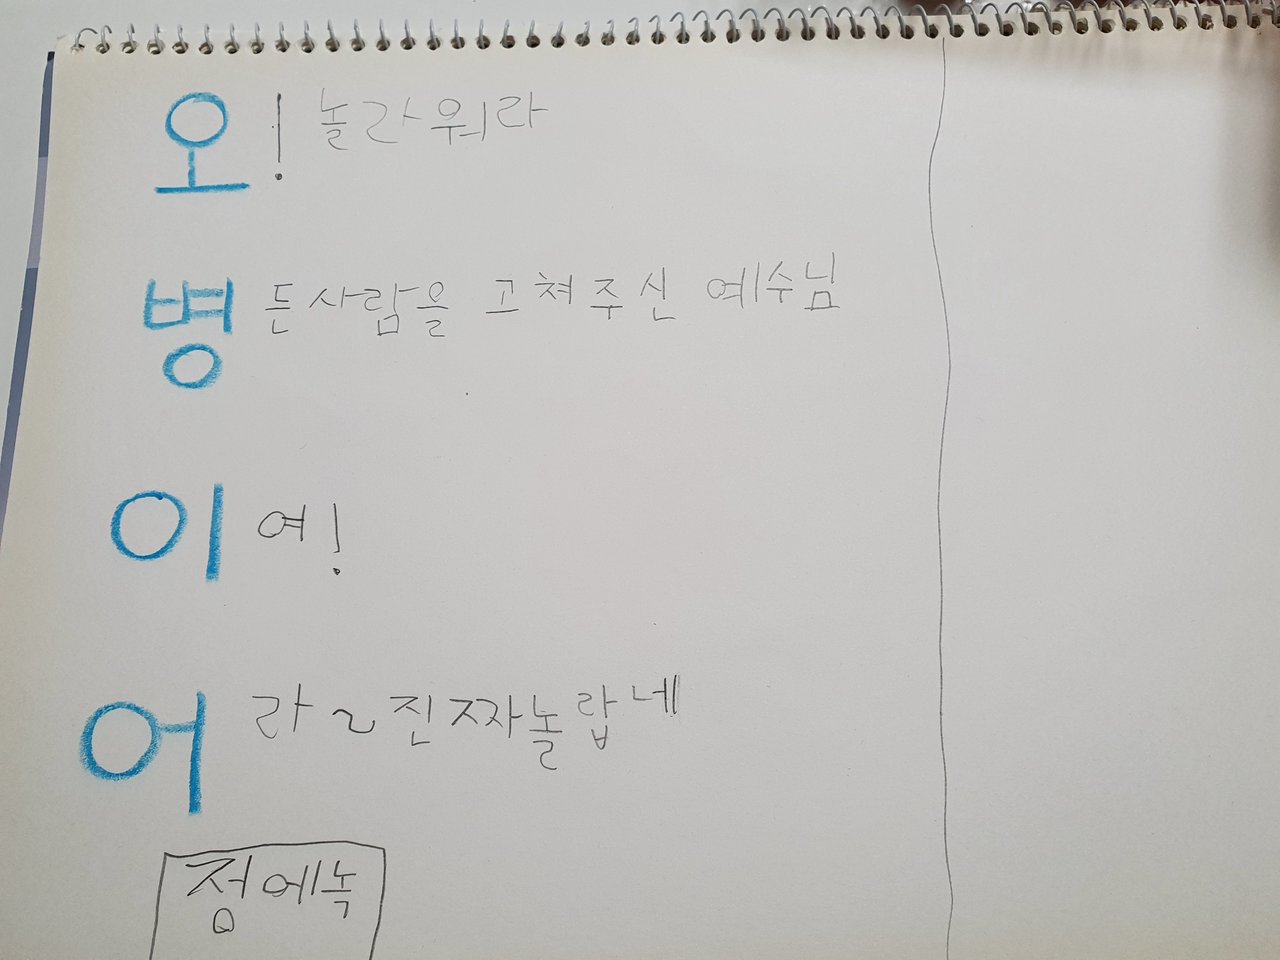 오! 놀라워라
병든사람을 고쳐주신 예수님
이여!
어라~진짜놀랍네
정에녹